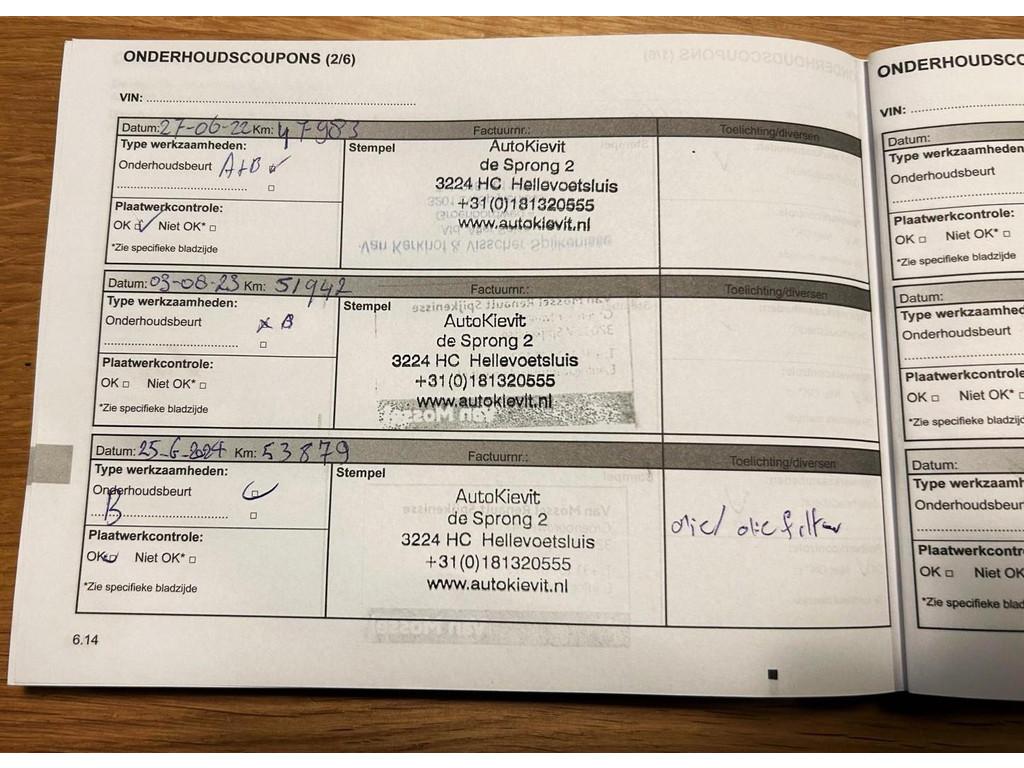 ONDERHOUDSCOUPONS (2/6)
VIN:
Datum: 27-06-22 Km: 47983 Factuurnr.: Toelichting/diversen
Type werkzaamheden:
Onderhoudsbeurt A+B
Plaatwerkcontrole:
OK Niet OK*
*Zie specifieke bladzijde
Stempel
AutoKievit
de Sprong 2
3224 HC Hellevoetsluis
+31(0)181320555
www.autokievit.nl
Van Kerkhof & Visscher Spijkenisse
Datum: 03-08-23 Km: 51942 Factuurnr.: Toelichting/diversen
Type werkzaamheden:
Onderhoudsbeurt B
Plaatwerkcontrole:
OK Niet OK*
*Zie specifieke bladzijde
Stempel
AutoKievit
de Sprong 2
3224 HC Hellevoetsluis
+31(0)181320555
www.autokievit.nl
Datum: 25-6-2024 Km: 53879 Factuurnr.: Toelichting/diversen
Type werkzaamheden:
Onderhoudsbeurt
B
Plaatwerkcontrole:
OK Niet OK*
*Zie specifieke bladzijde
Stempel
AutoKievit
de Sprong 2
3224 HC Hellevoetsluis
+31(0)181320555
www.autokievit.nl
olie/ oliefilter
6.14
ONDERHOUDSCO
VIN:
Datum:
Type werkzaamheden
Onderhoudsbeurt
Plaatwerkcontrole:
OK Niet OK*
*Zie specifieke bladzijde
Datum:
Type werkzaamhed
Onderhoudsbeurt
Plaatwerkcontrole
OK Niet OK*
*Zie specifieke bladzij
Datum:
Type werkzaamh
Onderhoudsbeur
Plaatwerkcontro
OK Niet OK
*Zie specifieke blad